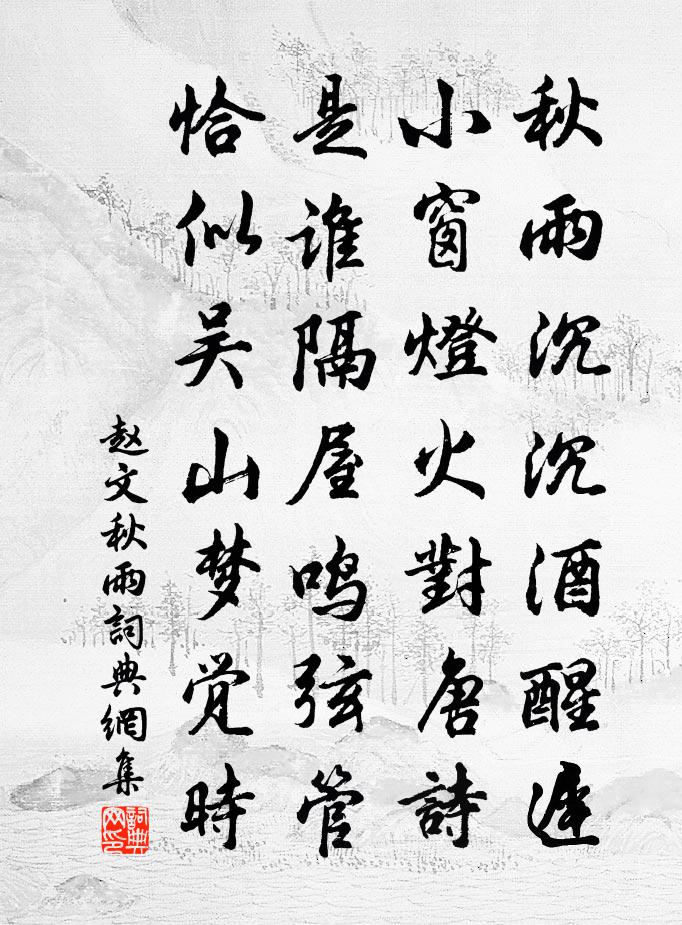 秋雨沉沉酒醒遲
小窗燈火對唐詩
是谁隔屋鸣弦管
恰似吴山梦觉時
赵文秋雨詞典網集
詞典网印